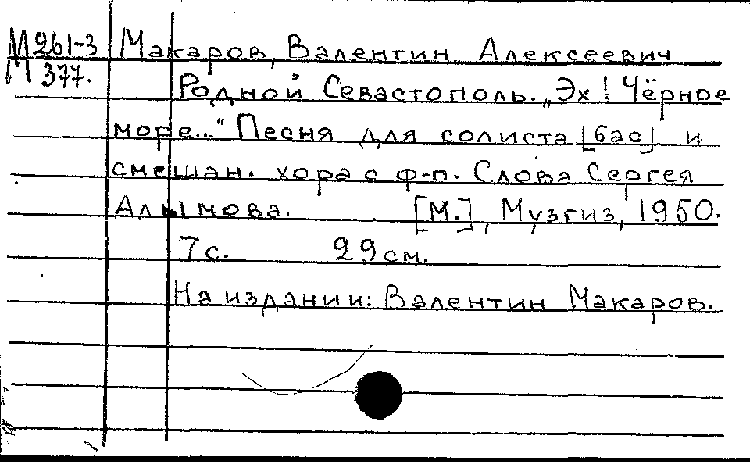 М 261-3 Макаров, Валентин Алексеевич
М 377. Родной Севастополь. „Эх! Чёрное
море..." Песня для солиста [бас] и
смешан. хора с ф-п. Слова Сергея
Алымова. [М.], Музгиз, 1950.
7 с. 29 см.
На издании: Валентин Макаров.